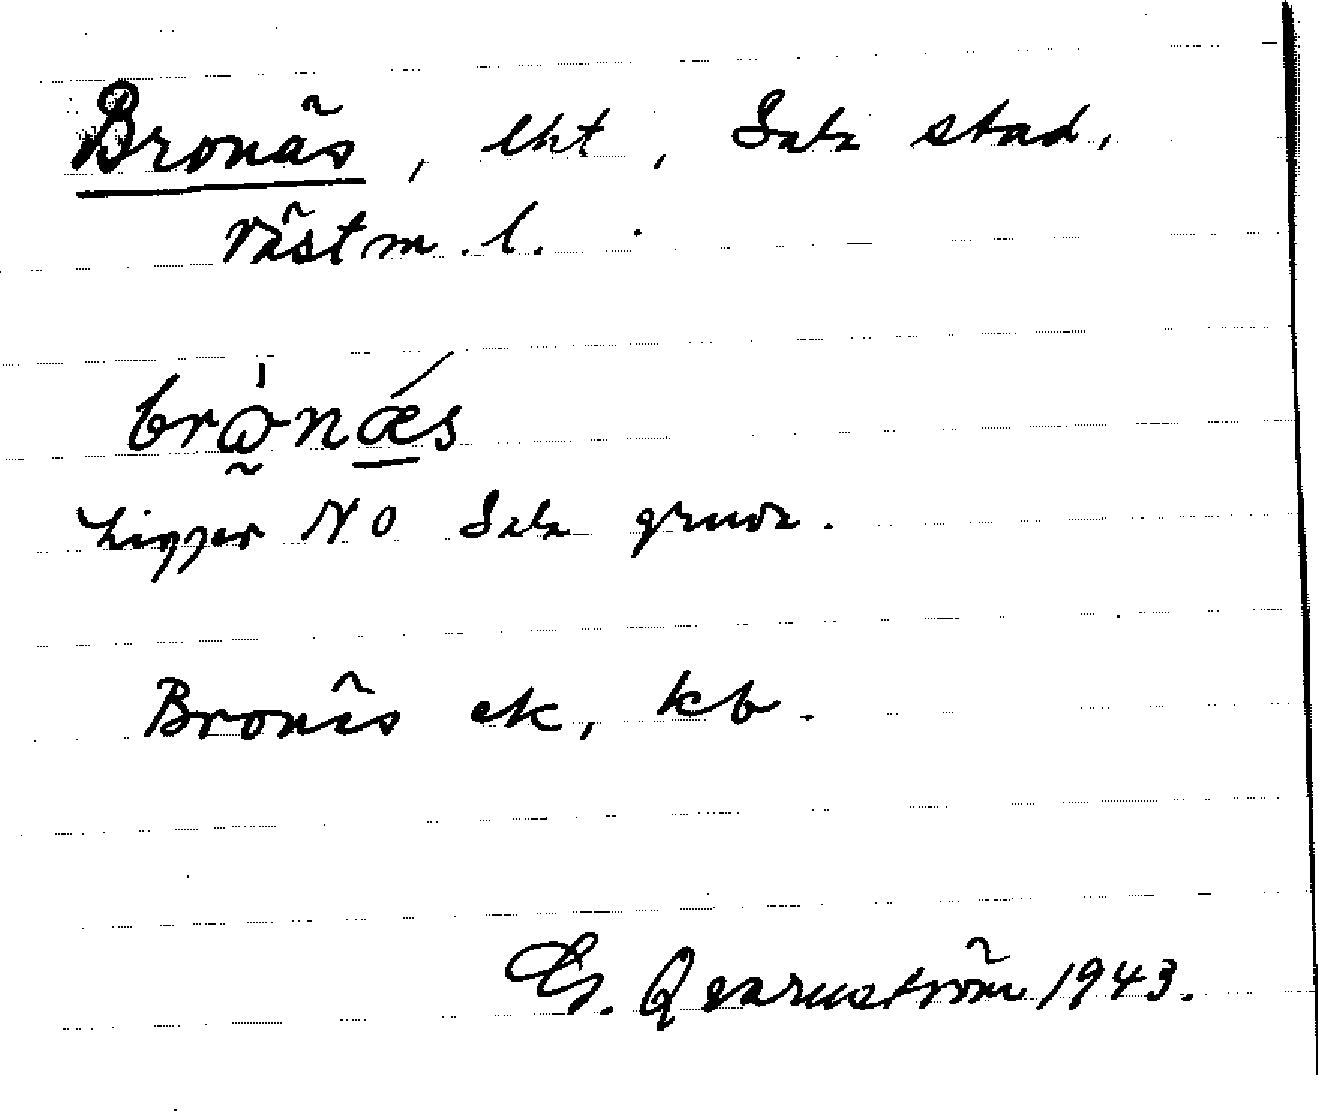 Bronäs, lht, Sala stad,
Västm. l.
brὼnǽ̲s
Ligger NO Sala gruva.
Bronäs ek, kb.
G. Qvarnström 1943.